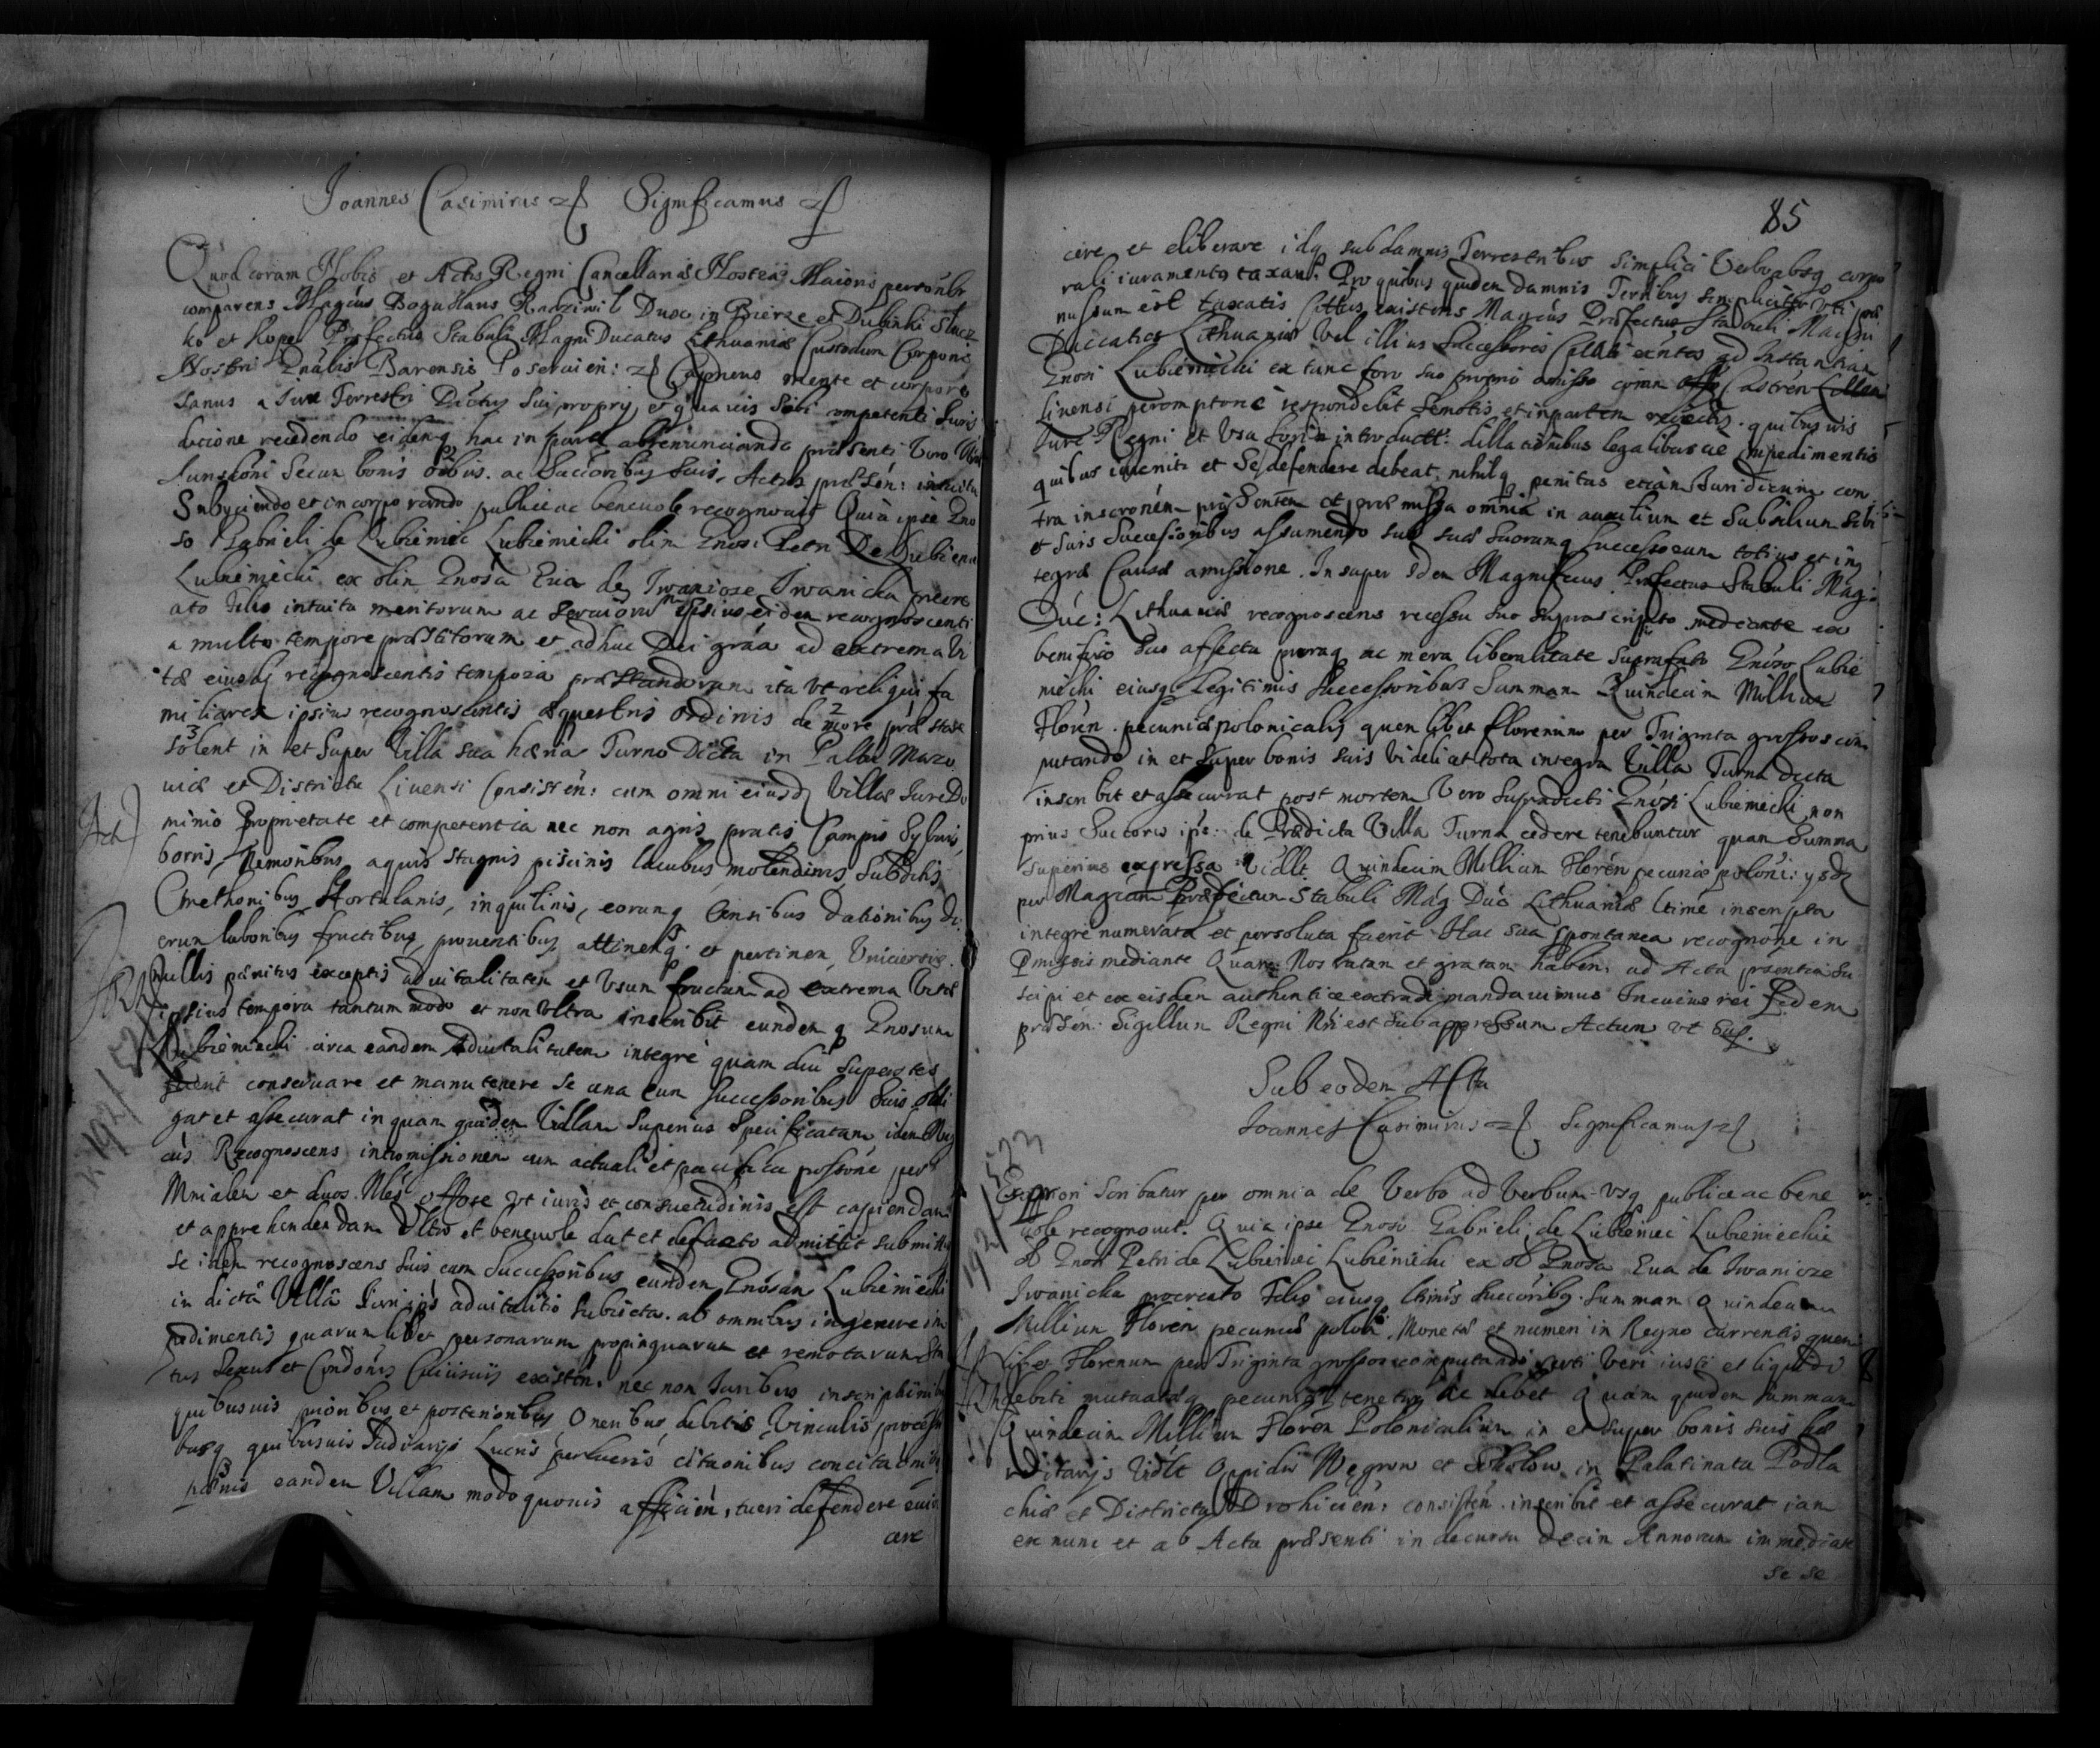 Joannes Casimirus Significamus
Quod coram Nobis et Actis Regni Cancellariae Nostrae Maioris personlr
comparens Magcus Boguslaus Radziwil Dux in Bierze et Dubinki Slucz
ko et Kopel Praefectus Stabuli Magni Ducatus Lithuaniae Custodum Corporis
Nostri Gnalis Barensis Posnauien: Capitaneus mente et corpore
sanus a Jure Terrestri Dictus sui proprij et quauis sibi competenti Juris
dicione recedendo eidemq hac in parte abrenunciando praesenti vero
Jurisdioni se cum bonis oibus ac Succoribus suis, Actus praesen:
Subyciendo et incorporando publice ac beneuole recognouit Quia ipse Gno
so Gabrieli de Lubieniec Lubieniecki olim Gnosi Petri De Lubieniec
Lubieniecki ex olim Gnosa Eua de Iwanicze Iwanicka procre
ato Filio intuitu meritorum ac seruiciorum ipsius eidem recognoscenti
a multo tempore praestitorum et adhuc Dei graa ad extrema vi
tae eiusdem recognoscentis tempora praestandorum ita vt reliqui fa
miliares ipsius recognoscentis aequestris ordinis de more praestare
solent in et super Villa sua haeria Turna Dicta in Pallu Mazo
uiae et Districtu Liuensi Consisten: cum omni eiusdem Villae Jure Do
minio Proprietate et competentia nec non agris pratis Campis Syluis,
borris, Nemoribus aquis stagnis piscinis lacubus molendinis, Subditis
Cmethonibus Hortulanis, inquilinis, eorumq Censibus dationibus di
erum laboribus fructibus prouentibus attinen et pertinen Vniuersis
nullis poenitus exceptis aduitalitatem et Vsum fructum ad extrema Vitae
ipsius tempora tantummodo et non vltra inscribit eundemq Gnosum
Lubieniecki circa eandem Aduitalitatem integre quam diu superstes
fuerit conseruare et manutenere se una cum successoribus suis obli
gat et assecurat in quam quidem Villam superius specificatam idem Mag
cus Recognoscens intromissionem cum actuali et pacifica possone per
Mnialem et duos Nles offose vt iuris et consuetudinis est capiendam
et apprehendendam vltro et beneuole dat et defacto admittit submittit
se idem recognoscens suis cum successoribus eundem Gnosum Lubieniecki
in dicta Villa Juri ipi aduitalitio subiecta ab omnibus in genere im
pedimentis quarumlibet personarum propinquarum et remotarum
tus Sexus et Condonis Cuiusuis existen. nec non Juribus inscriptionibus
quibusuis prioribus et posterioribus, Oneribus, debitis, Vinculis, processi
busq quibusuis Judiciarijs Lucris perlucris citaonibus concitaonibus
poenis eandem Villam modo quouis afficien, tueri defendere euin
cere
85
cere et eliberare idq sub damnis Terrestribus simplici Verbo absq corpo
rali iuramento taxan. Pro quibus quidem damnis Terribus simpliciter vti prae
missum est taxatis Cittus existens Magcus Praefectus Stabuli Magni
Duccatus Lithuaniae vel illius Successores Citati exntes ad Instantiam
Gnosi Lubieniecki ex tunc foro suo proprio omisso coram offo Castren
Liuensi peremptorie respondebit semotis et in partem reiectis quibusuis
Jure Regni et Vsu fori introductt. dillationibus legalibus ac impedimentis
quibus inueniri et se defendere debeat nihilq penitus etiam Juridicum con
tra inscronem praesentem et praemissa omnia in auxilium et subsidium sibi
et suis successoribus assumendo sub suae suorumq successorum totius et in
tegrae Causae amissione. Insuper Idem Magnificus Praefectus Stabuli Mag:
Duc: Lithuaniae recognoscens recessu suo suprascripto mediante ex
benifico suo affectu puraq ac mera liberalitate suprafato Gnoso Lubie
niecki eiusq Legitimis Successoribus Summam Quindecim Millium
Floren. pecuniae polonicalis quemlibet florenum per Triginta grossos com
putando in et super bonis suis videlicet tota integra Villa Turna dicta
inscribit et assecurat post mortem vero supradicti Gnosi Lubieniecki non
prius Succores ipi: de Praedicta Villa Turna cedere tenebuntur quam Summa
superius expressa vidlt Quindecim Millium Floren pecuniae poloni: ysdem
per Magcum Praefectum Stabuli Mag Duc Lithuaniae Ltime inscripta
integre numerata et persoluta fuerit Hac sua spontanea recognone in
Pmissis mediante Quam Nos ratam et gratam haben: ad Acta praesentia su
scipi et ex eisdem authentice extradi mandauimus In cuius rei Fidem
praesen: Sigillum Regni Nri est subappressum Actum vt sup.
Sub eodem Actu
Joannes Casimirus Significamus
Exprori scribatur per omnia de Verbo ad Verbum vsq publice ac bene
uole recognouit. Quia ipse Gnoso Gabrieli de Lubieniec Lubieniecki
ol Gnosi Petri de Lubieniec Lubieniecki ex ol Gnosa Eua de Iwanicze
Iwanicka procreato Filio eiusq ltimis succoribq. Summam Quindecim
Millium Floren pecuniae polon. Monetae et numeri in Regno currentis quem
libet Florenum per Triginta grossos computando certi veri iusti et liquidi
debiti mutuataeq pecuniae tenetur ac debet Quam quidem Summam
Quindecim Millium Floren Polonicalium in et super bonis suis hae
reditarijs Vidlt Oppidis Wegrow et Sokolow in Palatinatu Podla
chiae et Districtu Drohicien: consisten. inscribit et assecurat iam
ex nunc et ab Actu praesenti in decursu decim Annorum immediate
se se